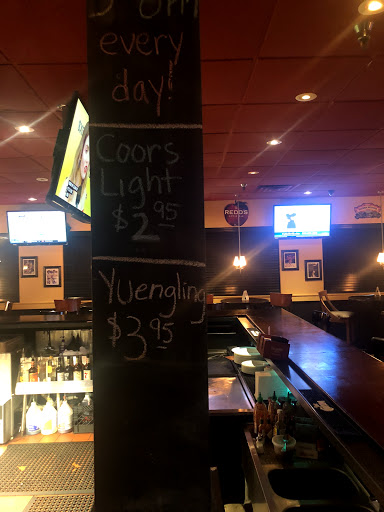 every
day!
Coors
Light
$2.95
Yuengling
$3.95
REDD'S